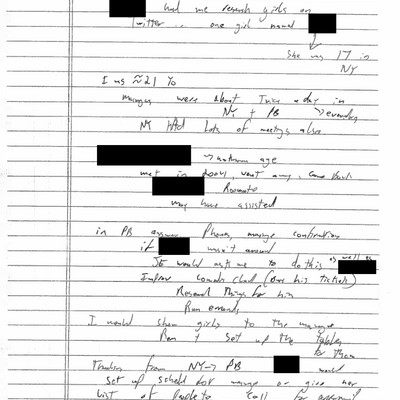 had me research girls on
Twitter .. one girl named
She was 17 in
NY
I was ≈21 Yo
massages were about Twice a day in
NY + PB → everyday
NY HAd Lots of meetings also
→ unknown age
met in 2004, went away, came back
Roomate
may have assisted
in PB answer Phones, massage confirmation
if wasn't around
JE would ask me to do this as well as
comedy club (buy his tickets)
Research Things for him
Run errands
I would show girls to the massage
Rm & set up the tables
for them
from NY → PB would
set up sched for massage or give her
List of People to Call for